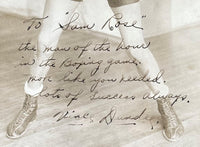 To "Sam Rose"
the man of the hour
in the Boxing game.
more like you needed.
Lots of Success always.
Vince Dundee